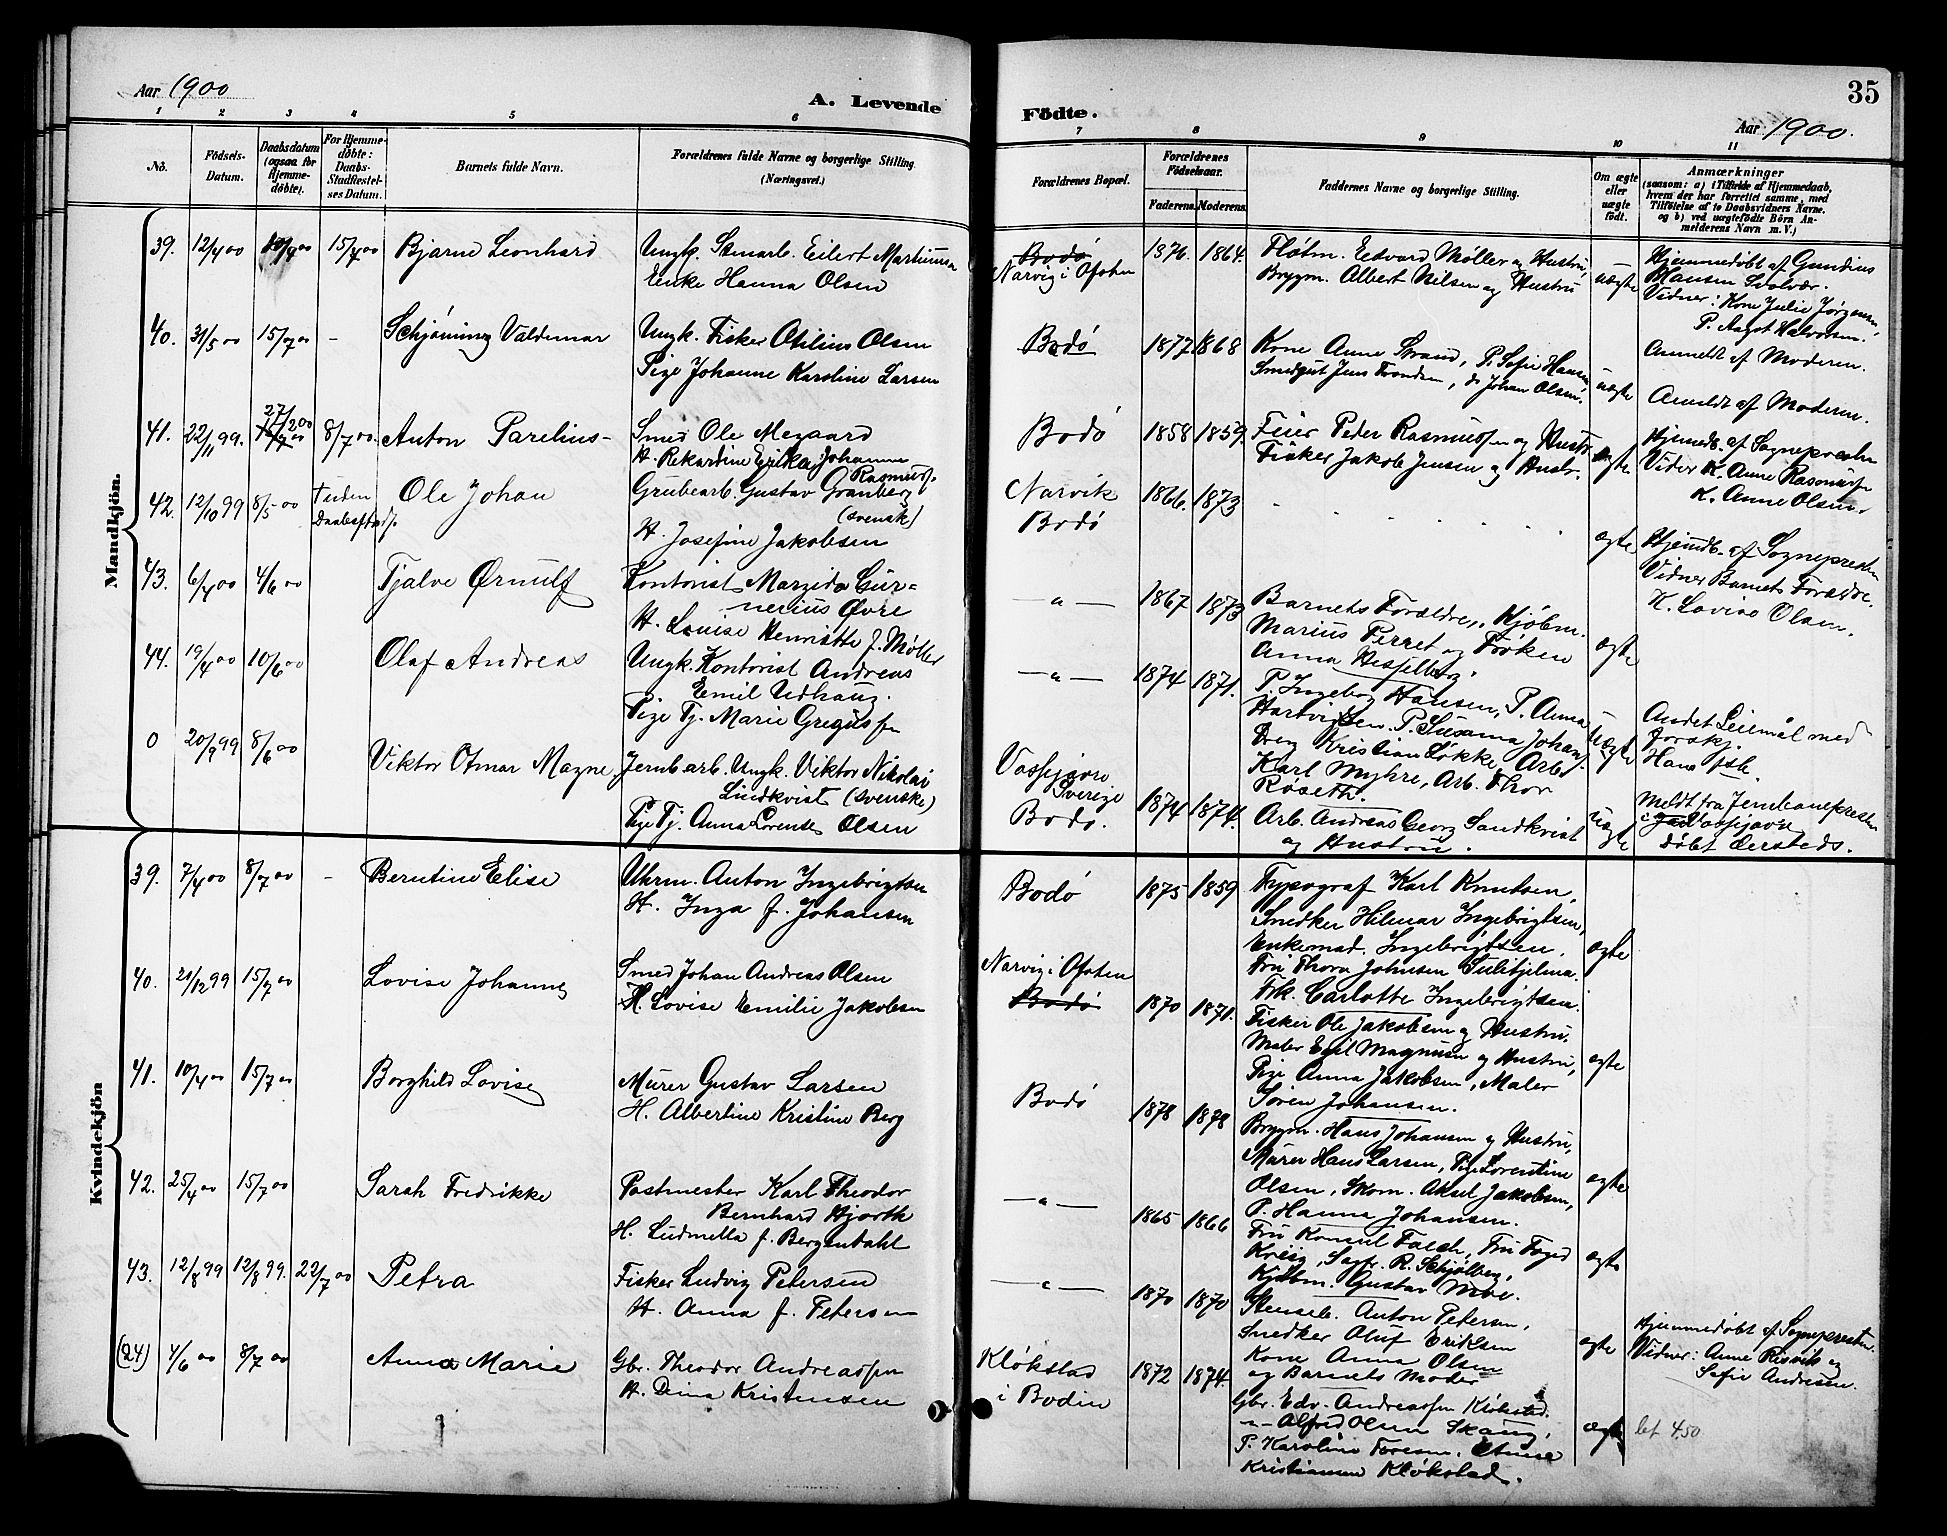 Aar 1900
A. Levende
1 2 3 4 5 6
No. Födsels-Datum. Daabsdatum (ogsaa for Hjemmedöbte). For Hjemmedöbte: Daabs-Stadfæstelses Datum. Barnets fulde Navn. Forældrenes fulde Navne og borgerlige Stilling. (Næringsvei.)
Mandkjön.
39. 12/4 00 15/4 00 Bjarne Leonhard Ungk. Stenarb. Eilert Martinusen
Enke Hanna Olsen
40. 31/5 00 15/7 00 - Schjöning Valdemar Ungk. Fisker Otilius Olsen
Pige Johanne Karoline Larsen
41. 22/11 99. 27/2 00 8/7 00. Anton Parelius- Smed Ole Megaard
H. Rekardine Erika Johanne
Rasmusf.
42. 12/10 99 8/5 00 Uden Daabsstadf. Ole Johan Grubearb. Gustav Granberg
(svensk)
H. Josefine Jakobsen
43. 6/4 00 4/6 00 Tjalve Ørnulf Kontorist Margido Gur-
nerius Øvre
H. Louise Henriette f. Møller
44. 19/4 00 10/6 00 Olaf Andreas Ungk. Kontorist Andreas
Emil Udhaug.
Pige Tj. Marie Gregusfen
0 20/9 99 8/6 00 Viktor Otmar Magne Jernb.arb. Ungk. Viktor Nikolai
Lindkvist (svenske)
Pige Tj. Anna Lorentse Olsen
Kvindekjön
39. 7/4 00 8/7 00 - Berntine Elise Uhrm. Anton Ingebrigtsen
H. Inga f. Johansen
40. 21/12 99 15/7 00 Lovise Johanne Smed Johan Andreas Olsen
H. Lovise Emilie Jakobsen
41. 10/4 00 15/7 00 Borghild Lovise Murer Gustav Larsen
H. Albertine Kristine Berg
42. 25/4 00 15/7 00 Sarah Fredrikke Postmester Karl Theodor
Bernhard Hjorth
H. Ludmella f. Bergendahl
43. 12/8 99 12/8 99. 22/7 00 Petra Fisker Ludvig Petersen
H. Anna f. Petersen
(24) 4/6 00 8/7 00 Anna Marie Gbr. Theodor Andreassen
H. Dina Kristensen
35
Födte.
Aar 1900.
7 8 9 10 11
Forældrenes Bopæl. Forældrenes Födselsaar. Faderens. Moderens. Faddernes Navne og borgerlige Stilling. Om ægte eller uægte födt. Anmærkninger (saasom: a) i Tilfælde af Hjemmedaab, hvem der har forrettet samme, med Tilföielse af to Daabsvidners Navne, og b) ved uægtefödte Börn Anmelderens Navn m. V.)
Bodø
Narvig i Ofoten 1876. 1864. Fløtm. Edvard Møller og Hustru,
Brygm. Albert Nilsen og Hustru uægte Hjemmedøbt af Gundius
Hansen Svolvær.
Vidner: Kone Julie Jørgensen,
P. Aagot Halvorsen.
Bodø 1877 1868 Kone Anne Strand, P. Sofie Hansen,
Smedgut Jens Trondsen, do Johan Olsen. uægte Anmeldt af Moderen.
Anmeldt af Moderen.
Bodø 1858 1859. Feier Peder Rasmussen og Hustr.
Fisker Jakob Jensen og Hustr. ægte Hjemmedb. af Sognepresten
Vidner K. Anne Rasmusf.
K. Anne Olsen.
Narvik
Bodø 1866. 1873 ægte Hjemdb. af Sognepresten
Vidner Barnets Forældre.
K. Lovise Olsen.
— " — 1867 1873 Barnets Forældre, Kjöbm.
Marius Perret og Frøken
Anna Hesselberg. ægte
— " — 1874 1871. P. Ingeborg Hansen, P. Anna
Hartvigsen. P. Susanna Johans.
Dreng Kristian Løkke, Arb.
Karl Myhre, Arb. Thor
Røseth. uægte Andet Leiemål med
forskj.
Vassijaure
Sverige
Bodø. 1874 1874. Arb. Andreas Georg Sandkvist
og Hustru. uægte Meldt fra Jernbanepresten
i Vassijaure
døbt dersteds.
Bodø 1875 1859 Typograf Karl Knutsen,
Snedker Hilmar Ingebrigtsen,
Enkemad. Ingebrigtsen,
Fru Thora Johnsen Sulitjelma.
Frk. Carlotte Ingebrigtsen. ægte
Narvig i Ofoten
Bodø 1870 1871. Fisker Ole Jakobsen og Hustru,
Maler Emil Magnusen og Hustru,
Pige Anna Jakobsen, Maler
Søren Johansen. ægte
Bodø 1878 1878 Brygm. Hans Johansen og Hustru,
Murer Hans Larsen, Pige Lorentine
Olsen, Skom. Aksel Jakobsen,
P. Hanna Johansen. ægte
— " — 1865 1866 Fru Konsul Falch, Fru Foged
Krieg, Sagf. R. Schjølberg,
Kjöbm. Gustav Moe. ægte
— " — 1870 1870 Stenarb. Anton Petersen,
Snedker Oluf Eriksen
Kone Anna Olsen
og Barnets Moder ægte Hjemmedøbt af Sognepresten.
Vidner: Anne Risvik og
Sofie Andresen.
Kløkstad
i Bodin 1872 1874. Gbr. Edv. Andreassen Kløkstad.
-"- Alfred Olsen Skaug,
P. Karoline Toresen. Anna
Kristiansen Kløkstad. ægte bet 4.50